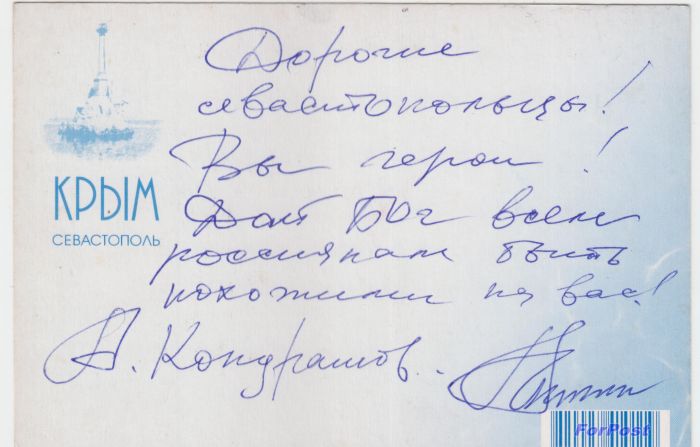 Дорогие
севастопольцы!
Вы герои!
КРЫМ
СЕВАСТОПОЛЬ
Дай Бог всем
россиянам быть
похожими на вас!
А. Кондрашов.
ForPost